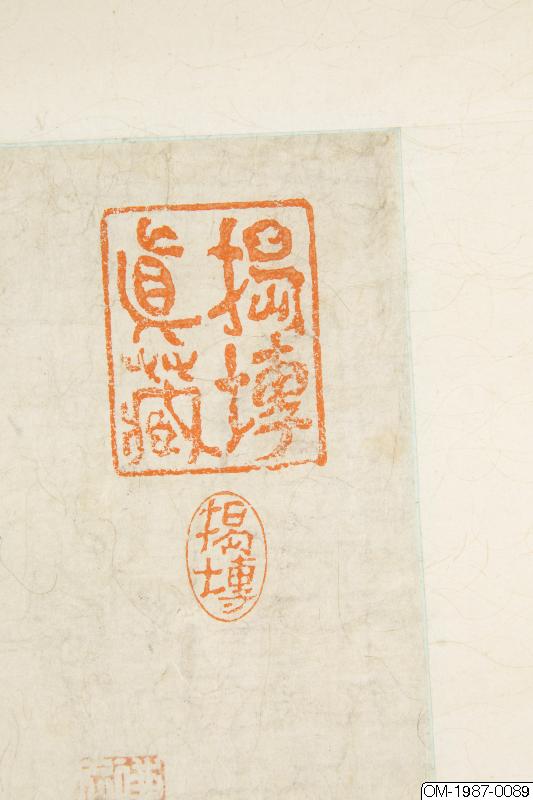 揭塼
眞藏
揭塼
OM-1987-0089